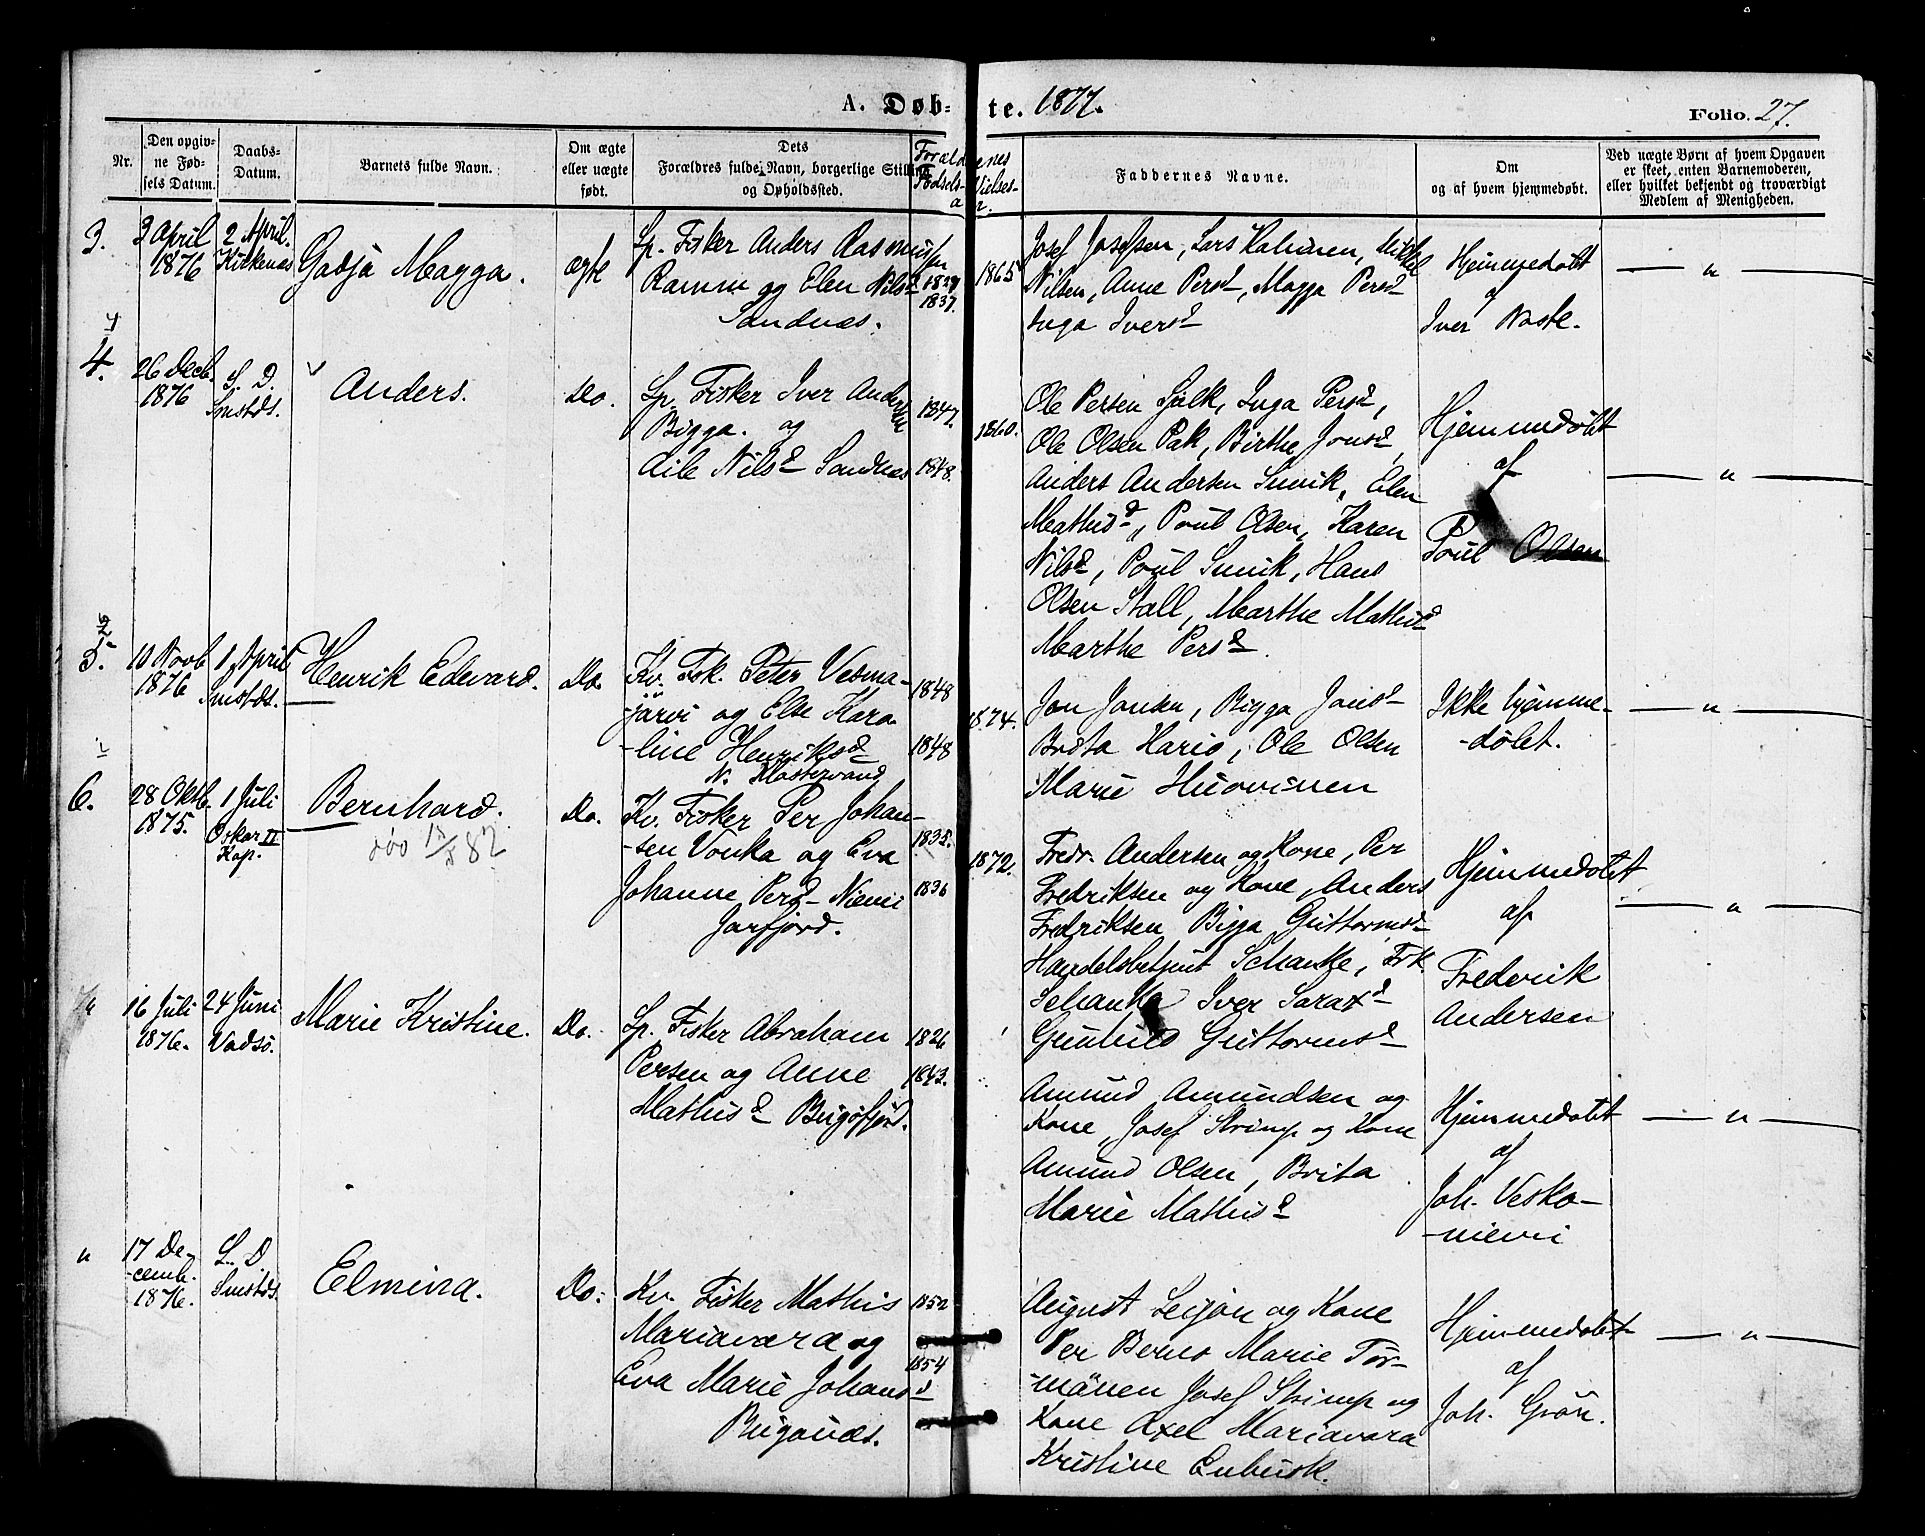 A. Døb- te. 1877.
Folio. 27.
Nr.
Den opgiv-
ne Fød-
sels Datum.
Daabs-
Datum.
Barnets fulde Navn.
Om ægte
eller uægte
født.
Dets
Forældres fulde Navn, borgerlige Stilling
og Opholdssted.
Faddernes Navne.
Om
og af hvem hjemmedøbt.
Ved uægte Børn af hvem Opgaven
er skeet, enten Barnemoderen,
eller hvilket bekjendt og troværdigt
Medlem af Menigheden.
3.
3 April
1876
2 April.
Kirkenæs
Gadja Magga.
ægte
Sp. Fisker Anders Rasmussen
Ramm og Elen Nilsd
Sandnæs.
1837.
1865
Josef Josefsen, Lars Halonen, Mikkel
Nilsen, Anne Persd, Magga Persd
Inga Iversd
Hjemmedøbt
af
Iver Noste.
— " —
4.
26 Decb.
1876
S. D.
Smstds.
Anders.
Do.
Sp. Fisker Iver Andersen
Bigga. og
Aile Nilsd Sandnes
1847.
1848.
1860.
Ole Persen Fjelk, Inga Persd,
Ole Olsen Pak, Birthe Jonsd,
Anders Andersen Suvik, Elen
Mathisd, Poul Olsen, Karen
Nilsd, Poul Suvik, Hans
Olsen Stall, Marthe Mathisd
Marthe Persd.
Hjemmedøbt
af
Poul Olsen
— " —
5.
10 Novb
1876
1 April
Smstds.
Henrik Edevard.
Do.
Kv. Fsk. Peter Vesma-
-järvi og Else Karo-
-line Henriksd
N. Klostervand
1848
1848
1874.
Jon Jonsen, Bigga Jonsd
Brita Hario, Ole Olsen
Marie Huovinen
Ikke hjemme-
-døbt.
— " —
6.
28 Oktb.
1875.
1 Juli
Oskar II
Kap.
Bernhard.
död
82
Do.
Kv. Fisker Per Johan-
-sen Vonka og Eva
Johanne Persd- Niemi
Jarfjord.
1835.
1836
1872.
Fredr. Andersen og Kone, Per
Fredriksen og Kone, Anders
Fredriksen Bigga Guttormsd
Handelsbetjent Schanke, Frk.
Schanke Iver Saraxd
Gunhild Guttormsd
Hjemmedøbt
af
Frederik
Andersen
— " —
16 Juli
1876.
24 Juni
Vadsö.
Marie Kristine.
Do.
Sp. Fisker Abraham
Persen og Anne
Mathisd Bugöfjord.
1826
1843.
Amund Amundsen og
Kone, Josef Strimp og Kone
Amund Olsen, Brita
Marie Mathisd
Hjemmedøbt
af
Joh. Vesko-
-niemi
— " —
"
17 De-
-cemb.
1876.
S. D.
Smstds.
Elmina.
Do.
Kv. Fisker Mathis
Mariavara og
Eva Marie Johansd
Bugönæs.
1852
1854
August Leijon og Kone
Per Berno Marie Tör-
-mänen Josef Strimp og
Kone Axel Mariavara
Kristine Enbusk.
Hjemmedøbt
af
Joh. Grön.
— " —